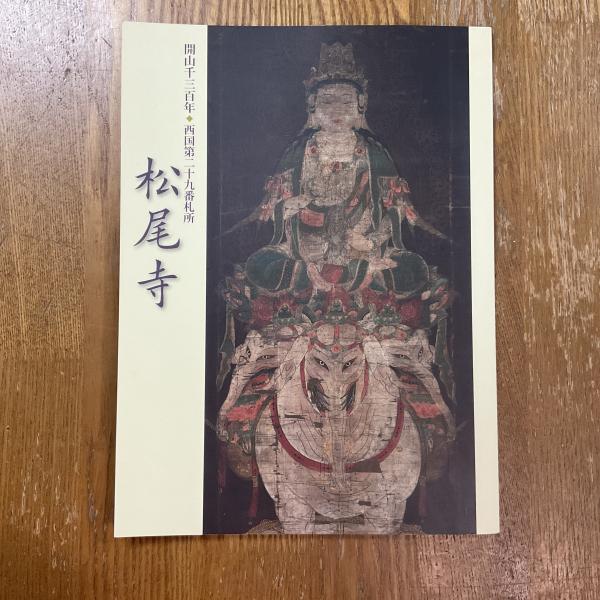 開山千三百年◆西国第二十九番札所
松尾寺